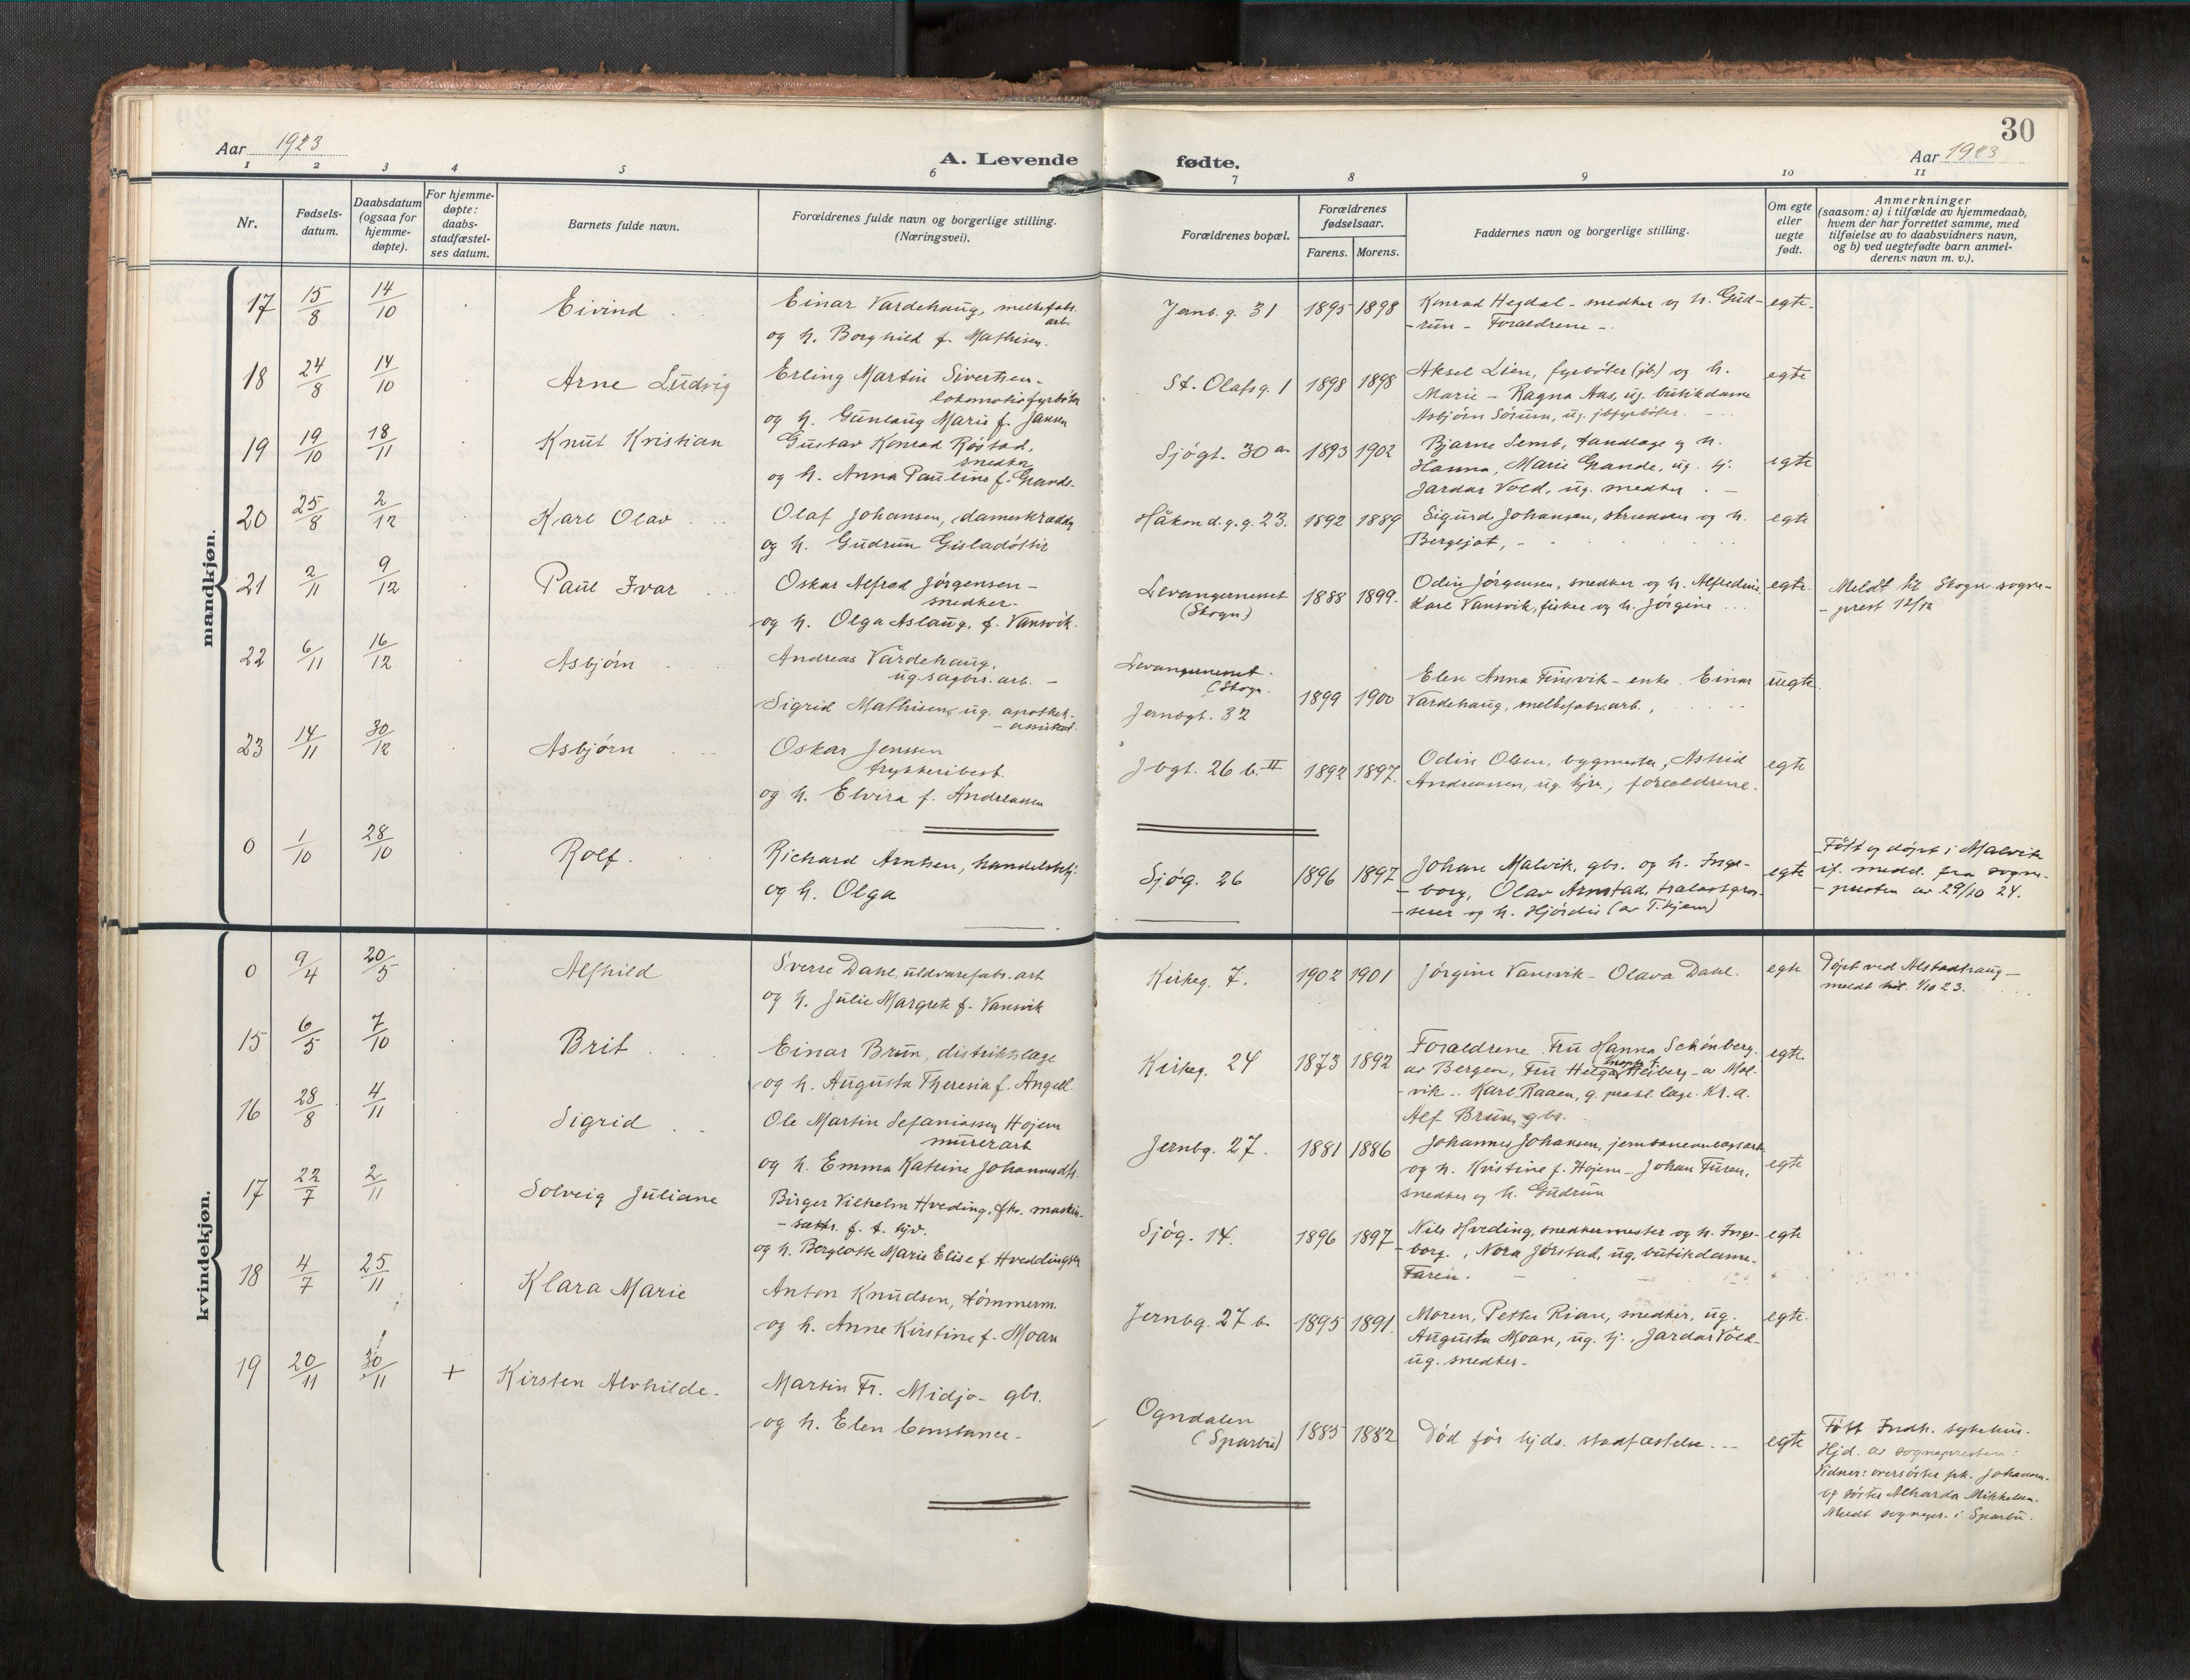 30
Aar 1923
A. Levende fødte.
Aar 1923
1 2 3 4 5 6 7 8 9 10 11
Nr.
Fødsels-
datum.
Daabsdatum
(ogsaa for
hjemme-
døpte).
For hjemme-
døpte:
daabs-
stadfæstel-
ses datum.
Barnets fulde navn.
Forældrenes fulde navn og borgerlige stilling.
(Næringsvei).
Forældrenes bopæl.
Forældrenes
fødselsaar.
Farens. Morens.
Faddernes navn og borgerlige stilling.
Om egte
eller
uegte
født.
Anmerkninger
(saasom: a) i tilfælde av hjemmedaab,
hvem der har forrettet samme, med
tilføielse av to daabsvidners navn,
og b) ved uegtefødte barn anmel-
derens navn m. v.).
mandkjøn.
17 15/8 14/10 Eivind
Einar Vardehaug, melkefabr.
arb.
og h. Borghild f. Mathisen.
Jernb. g. 31 1895 1898
Konrad Hegdal - snedker og h. Gud-
-run - Forældrene -.
egte.
18 24/8 14/10 Arne Ludvig
Erling Martin Sivertsen-
lokomotivfyrbøter
og h. Gunlaug Marie f. Jansen
St. Olafsg. 1 1898 1898
Aksel Lien, fyrbøter (jb.) og h.
Marie - Ragna Aas, ug. butikdame
Asbjørn Sörum, ug. jbfyrbøter.
egte
19 19/10 18/11 Knut Kristian
Gustav Konrad Røstad,
snedker
og h. Anna Pauline f. Grande.
Sjøgt. 30 a 1893 1902
Bjarne Semb, tandlæge og h.
Hanna, Marie Grande, ug. hj.
Jardar Vold, ug. snedker. -
egte
20 25/8 2/12 Karl Olav
Olaf Johansen, dameskrædder
og h. Gudrun Gisladóttir
Håkon d. g. g. 23. 1892 1889
Sigurd Johansen, skrædder og h.
Bergljot, -
egte
21 2/11 9/12 Paul Ivar
Oskar Alfred Jörgensen -
snedker.
og h. Olga Aslaug, f. Vansvik.
Levangernesset
(Skogn) 1888 1899.
Odin Jörgensen, snedker og h. Alfredine.
Karl Vansvik, fisker og h. Jörgine
egte.
Meldt til Skogn sogne-
-prest 12/12
22 6/11 16/12 Asbjørn
Andreas Vardehaug,
ug. sagbr. arb. -
Sigrid Mathisen, ug. apothek-
-assistent.
Levangernesset
(Skogn.
Jernbgt. 32 1899 1900
Elen Anna Finsvik - enke. Einar
Vardehaug, melkefabr.arb.,
uegte.
23 14/11 30/12 Asbjørn
Oskar Jenssen
trykkeribest.
og h. Elvira f. Andreassen
Jbgt. 26 b. II 1892 1897.
Odin Olsen, bygmester, Astrid
Andreassen, ug. hjv., forældrene.
egte
0 1/10 28/10 Rolf.
Richard Arntsen, handelsbetj.
og h. Olga
Sjøg. 26 1896 1897
Johan Malvik, gbr. og h. Inge-
-borg, Olav Arnstad, trælastgros-
-serer og h. Hjördis (av T.hjem)
egte
Född og döpt i Malvik
if. medd. fra sogne-
-presten av 29/10 24.
kvindekjøn.
0 9/4 20/5 Alfhild
Sverre Dahl, uldvarefabr. arb
og h. Julie Margrete f. Vansvik
Kirkeg. 7. 1902 1901
Jørgine Vansvik - Olava Dahl.
egte
Döpt ved Alstadhaug -
meldt hit. 1/10 23.
15 6/5 7/10 Brit
Einar Brun, distriktslæge
og h. Augusta Theresia f. Angell.
Kirkeg. 24 1873 1892
Forældrene. Fru Hanna Schønberg
av Bergen, Fru Helga Heiberg - av Mal-
-vik .. Karl Raaen, q. prakt. læge. Kr. a.
Alf Brun, gbr.
egte.
16 28/8 4/11 Sigrid
Ole Martin Sefaniassen Hojem
murerarb
og h. Emma Katrine Johannesdtr.
Jernbg. 27. 1881 1886
Johannes Johansen, jernbaneanlægsarb.
og h. Kristine f. Hojem - Johan Furan,
snedker og h. Gudrun
egte
17 22/7 2/11 Solveig Juliane
Birger Vilhelm Hveding, fhv. maskin-
- sættr. f. t. hjv.
og h. Berglotte Marie Elise f. Hveddingsen
Sjøg. 14. 1896 1897
Nils Hveding, snedkermester og h. Inge-
-borg., Nora Jørstad, ug. butikdame-
Faren.
egte
18 4/7 25/11 Klara Marie
Anton Knudsen, tømmerm.
og h. Anne Kirstine f. Moan
Jernbg. 27 b. 1895 1891.
Moren, Petter Rian, snedker, ug.
Augusta Moan, ug. hj., Jardar Vold-
ug. snedker -
egte.
19 20/11 30/11 + Kirsten Alvhilde.
Martin Fr. Midjo - gbr.
og h. Elen Constance.
Ogndalen
(Sparbu) 1885 1882
Død før hjds. stadfæstelse. --
egte
Født Indh. sykehus.
Hjd. av sognepresten:
Vidner: oversøster frk. Johansen.
og søster Alharda Mikkelsen.
Meldt sognepr. i Sparbu.